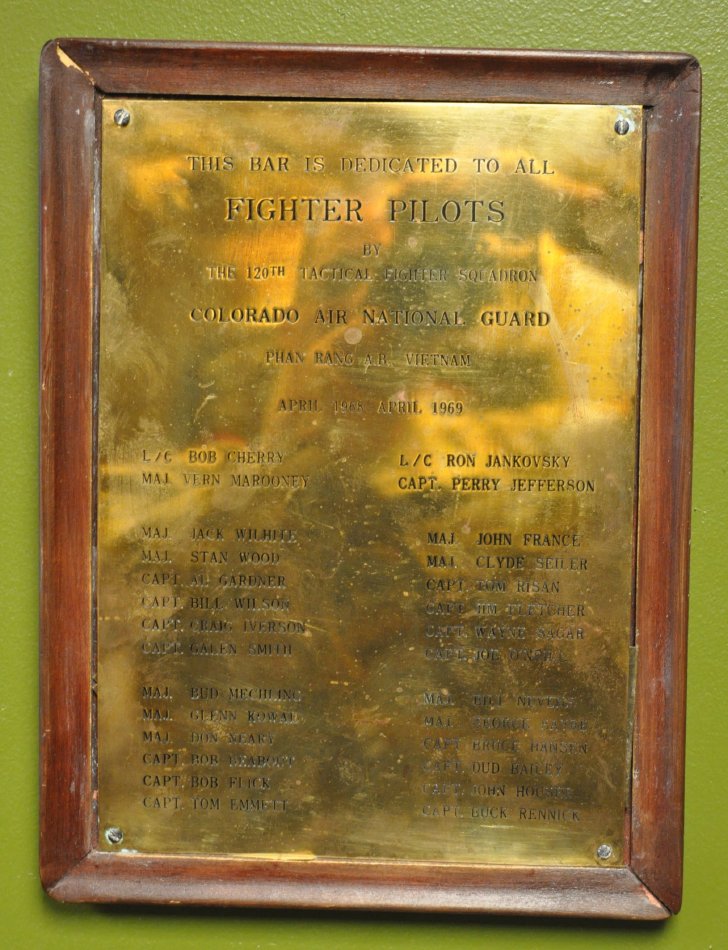 THIS BAR IS DEDICATED TO ALL
FIGHTER PILOTS
BY
THE 120TH TACTICAL FIGHTER SQUADRON
COLORADO AIR NATIONAL GUARD
PHAN RANG A.B., VIETNAM
APRIL 1968 APRIL 1969
L/C BOB CHERRY
MAJ. VERN MAROONEY
L/C RON JANKOVSKY
CAPT. PERRY JEFFERSON
MAJ. JACK WILHITE
MAJ. STAN WOOD
CAPT. AL GARDNER
CAPT. BILL WILSON
CAPT. CRAIG IVERSON
CAPT. GALEN SMITH
MAJ. JOHN FRANCE
MAJ. CLYDE SEILER
CAPT. TOM RISAN
CAPT. JIM FLETCHER
CAPT. WAYNE
CAPT. JOE O'NEILL
MAJ. BUD MECHLING
MAJ. GLENN
MAJ. DON NEARY
CAPT. BOB
CAPT. BOB FLICK
CAPT. TOM EMMETT
MAJ. BILL
MAJ. GEORGE
CAPT. BRUCE HANSEN
CAPT. OUD BAILEY
CAPT. JOHN
CAPT. BUCK RENNICK